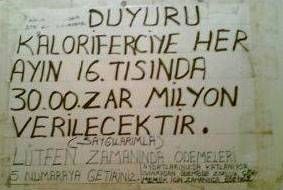 DUYURU
KALORİFERCİYE HER
AYIN 16.TISINDA
30.00.ZAR MİLYON
VERİLECEKTİR.
(SAYGILARIMLA)
LÜTFEN ZAMANINDA ÖDEMELERİ
5 NUMARAYA GETİRİNİZ